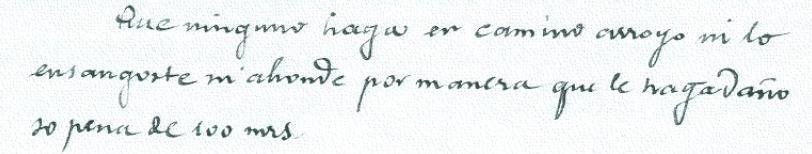 Que ninguno haga en camino arroyo ni lo
ensangoste ni ahonde por manera que le haga daño
so pena de 100 mrs